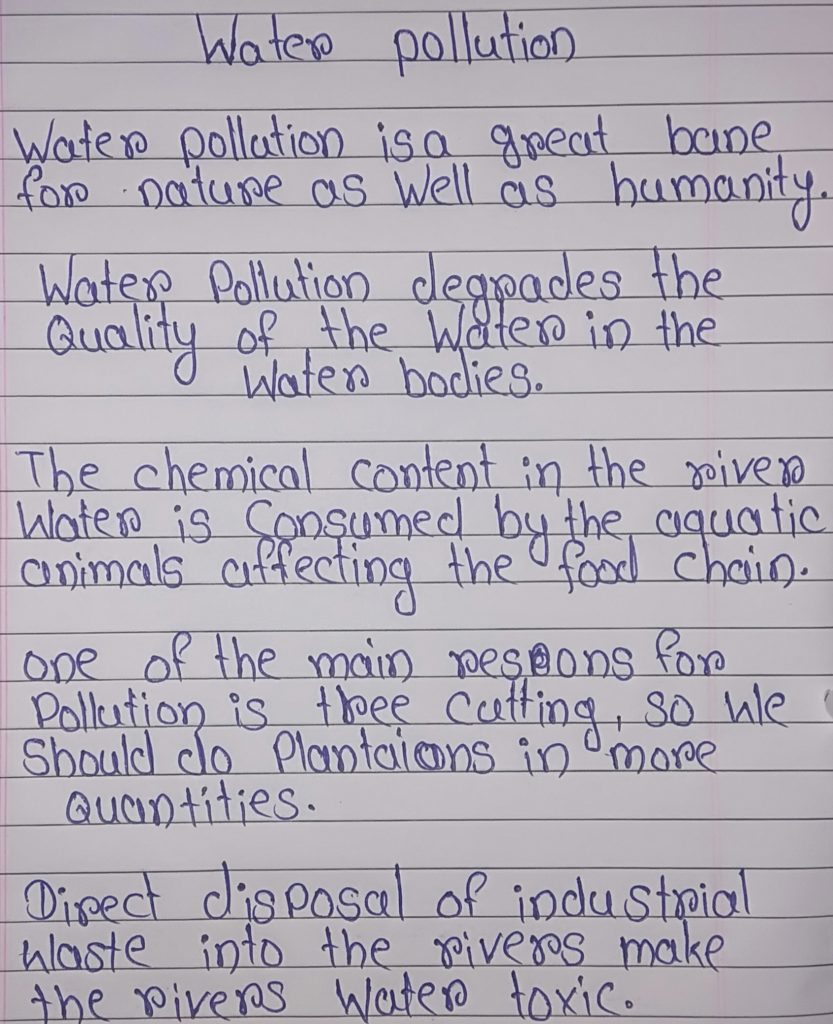 Water pollution
Water pollution is a great bane
for nature as well as humanity.
Water Pollution degrades the
Quality of the Water in the
Water bodies.
The chemical content in the river
Water is Consumed by the aquatic
animals affecting the food chain.
one of the main respons for
Pollution is three Cutting, so We
Should do Plantaions in more
Quantities.
Direct disposal of industrial
Waste into the rivers make
the rivers Water toxic.